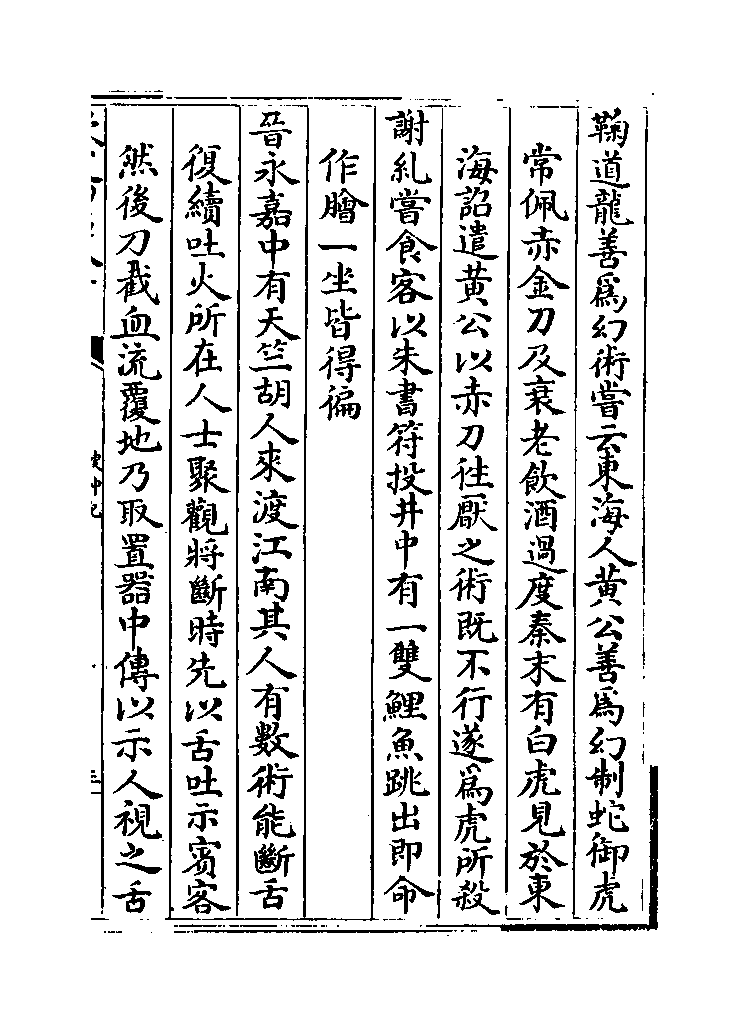 鞠道龍善爲幻術嘗云東海人黃公善爲幻制蛇御虎
常佩赤金刀及衰老飲酒過度秦末有白虎見於東
海詔遣黃公以赤刀往厭之術既不行遂爲虎所殺
謝糺嘗食客以朱書符投井中有一雙鯉魚跳出即命
作膾一坐皆得徧
晉永嘉中有天竺胡人來渡江南其人有數術能斷舌
復續吐火所在人士聚觀將斷時先以舌吐示賓客
然後刀截血流覆地乃取置器中傳以示人視之舌